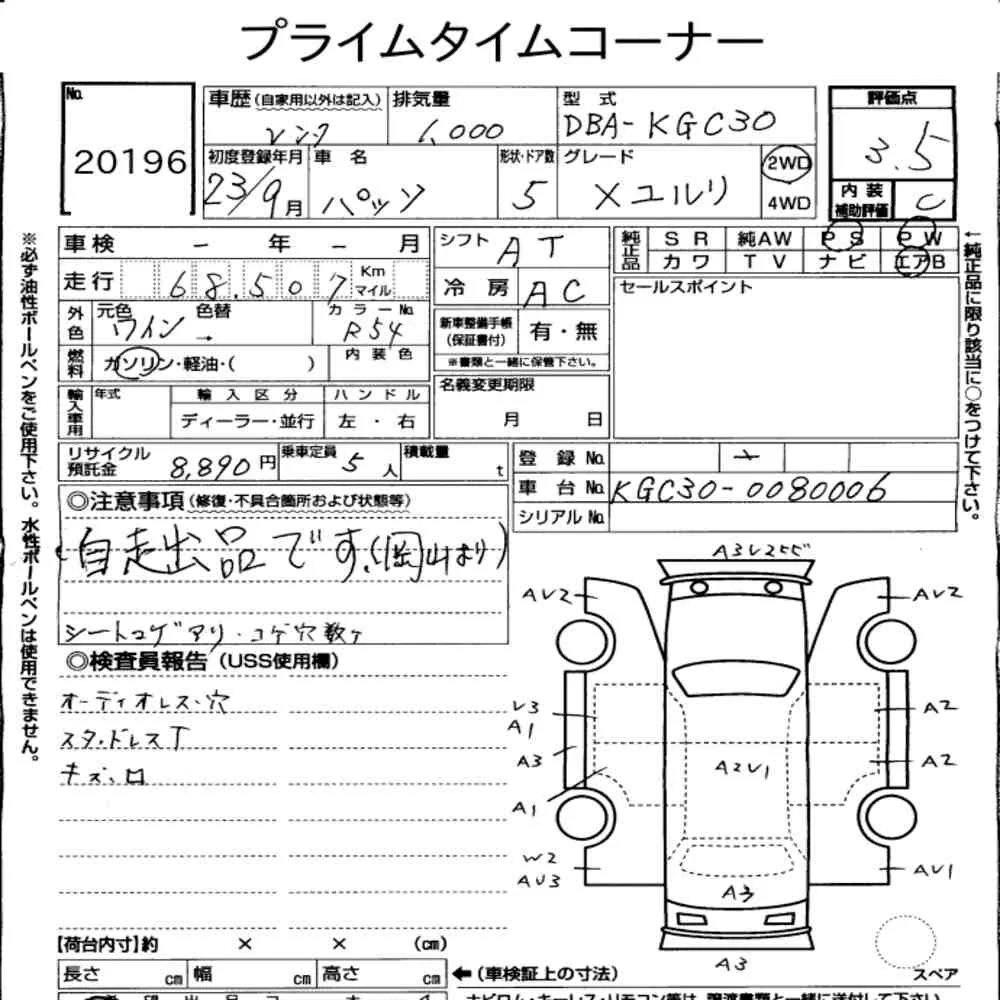 プライムタイムコーナー
No. 20196
車歴 (自家用以外は記入) レンタ
排気量 1,000
型式 DBA-KGC30
評価点 3.5
内装補助評価 C
初度登録年月 23/9月
車名 パッソ
形状・ドア数 5
グレード X ユルリ
2WD
4WD
車検 - 年 - 月
シフト AT
純正品 SR 純AW PS PW
カワ TV ナビ エアB
走行 68,507 Km マイル
冷房 AC
セールスポイント
外色 元色 ワイン 色替 → カラーNo. R54
新車整備手帳 (保証書付) 有・無
※書類と一緒に保管下さい。
燃料 ガソリン・軽油・( ) 内装色
名義変更期限 月 日
輸入車用 年式 輸入区分 ハンドル
ディーラー・並行 左・右
リサイクル預託金 8,890円
乗車定員 5人
積載量 t
登録No.
車台No. KGC30-0080006
シリアルNo.
※必ず油性ボールペンをご使用下さい。水性ボールペンは使用できません。
←純正品に限り該当に○をつけて下さい。
◎注意事項 (修復・不具合箇所および状態等)
自走出品です。(岡山より)
シートコゲアリ・コゲ穴数ヶ
◎検査員報告 (USS使用欄)
オーディオレス、穴
スタッドレスT
キズ、凹
AV2
AV2
V3
A1
A3
A1
A2
A2
A2V1
W2
AV3
AV1
A3
A3
スペア
【荷台内寸】約 × × (cm)
長さ cm 幅 cm 高さ cm
←(車検証上の寸法)